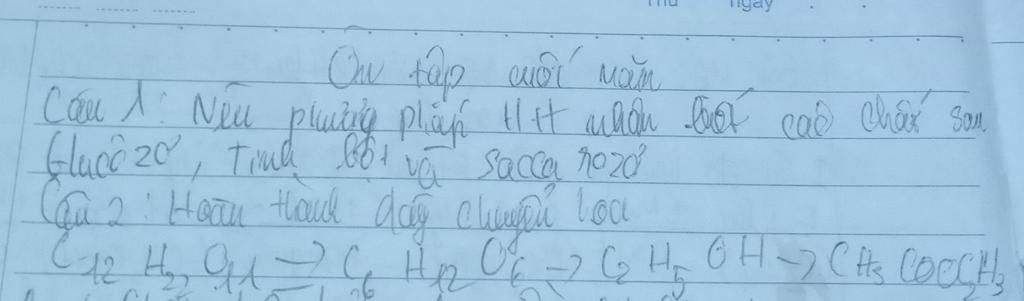 Thứ ngày
Ôn tập cuối năm
Câu 1: Nêu phương pháp HH nhận biết các chất sau
Glucôzơ, tinh bột và saccarozơ
Câu 2: Hoàn thành dãy chuyển hoá
C12 H22 O11 → C6 H12 O6 → C2 H5 OH → CH3 COOCH3